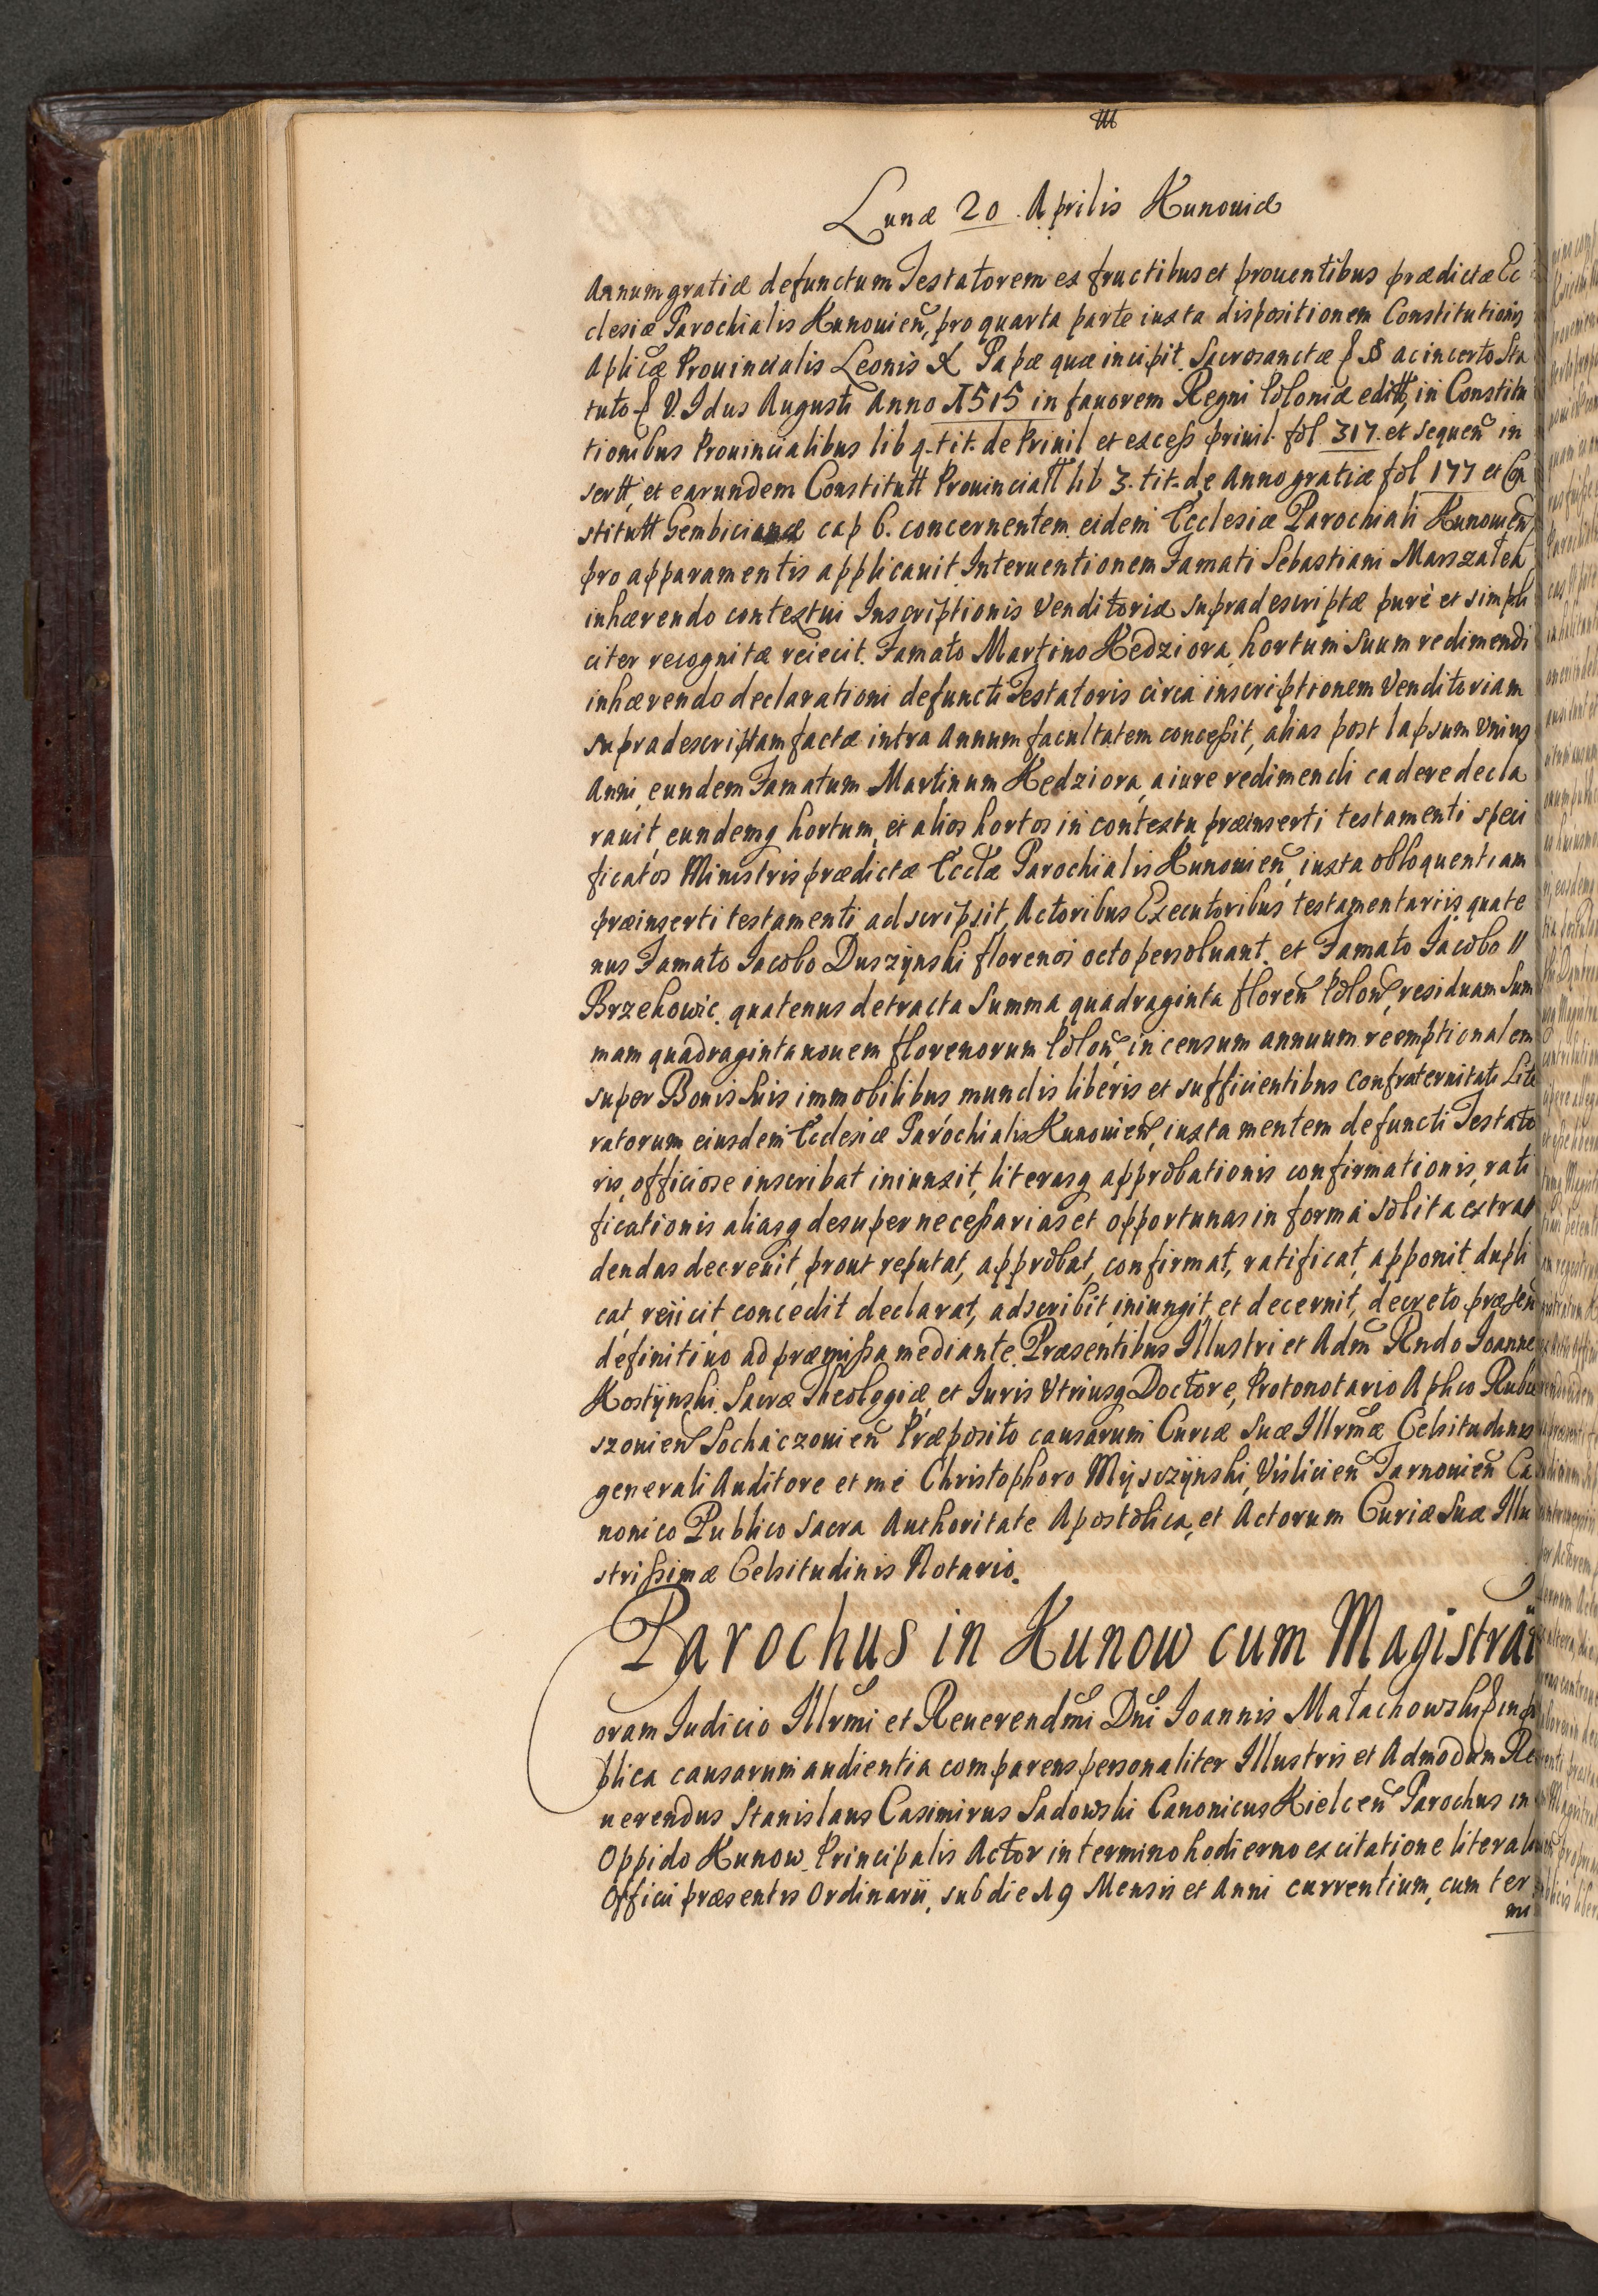 Lunæ 20. Aprilis Kunouiæ
Annum gratiæ defunctum Testatorem ex fructibus et prouentibus prædictæ Ec
clesiæ Parochialis Kunouien, pro quarta parte iuxta dispositionem Constitutionis
Aplicæ Prouincialis Leonis X Papæ quæ incipit Sacrosanctæ ac incerto Sta
tuto V. Idus Augusti Anno 1515 in fauorem Regni Poloniæ editt, in Constitu
tionibus Prouincialibus lib 4. tit. de Priuil et excess priuil. fol 317. et sequen in
sertt, et earundem Constitutt Prouinciatt lib 3. tit. de Anno gratiæ fol 177 et Con
stitutt Gembicianæ cap 6. concernentem eidem Ecclesiæ Parochiali Kunouien
pro apparamentis applicauit Interuentionem Famati Sebastiani Marszałek
inhærendo contextui Inscriptionis Venditoriæ supradescriptæ purè et simpli
citer recognitæ reiecit. Famato Martino Kedziora hortum suum redimendi
inhærendo declarationi defuncti Testatoris circa inscriptionem Venditoriam
supradescriptam factæ intra Annum facultatem concessit, alias post lapsum vnius
Anni, eundem Famatum Martinum Kedziora, a iure redimendi cadere decla
rauit, eundemq hortum, et alios hortos in contextu præinserti testamenti speci
ficatos Ministris prædictæ Ecclæ Parochialis Kunouien, iuxta obloquentiam
præinserti testamenti adscripsit, Actoribus Executoribus testamentariis quate
nus Famato Iacobo Duszÿnski florenos octo persoluant. et Famato Iacobo
Brzekowic. quatenus detracta Summa quadraginta floren Polon, residuam Sum
mam quadraginta nouem florenorum Polon in censum annuum reemptionalem
super Bonis Suis immobilibus mundis liberis et sufficientibus Confraternitati Lite
ratorum eiusdem Ecclesiæ Parochialis Kunouien, iuxta mentem defuncti Testato
ris, officiose inscribat iniunxit, literasq approbationis confirmationis, rati
ficationis aliasq desuper necessarias et opportunas in forma solita extra
dendas decreuit, prout reputat, approbat, confirmat, ratificat, apponit dupli
cat, reiicit, concedit declarat, adscribit, iniungit, et decernit, decreto præsen
definitiuo ad præmissa mediante. Præsentibus Illustri et Adm Rndo Ioanne
Kostÿnski Sacræ Theologiæ, et Iuris Vtriusq Doctore, Protonotario Aplico
szouien Sochaczouien Præposito causarum Curiæ Suæ Illrmæ Celsitudinis
generali Auditore et me Christophoro Mÿsczÿnski, Vislicien Tarnouien Ca
nonico Publico Sacra Authoritate Apostolica, et Actorum Curiæ Suæ Illu
strissimæ Celsitudinis Notario.
Parochus in Kunow cum Magistra
Coram Iudicio Illrmi et Reuerendmi Dni Ioannis Małachowski
blica causarum audientia comparens personaliter Illustris et Admodum Re
uerendus Stanislaus Casimirus Sadowski Canonicus Kielcen Parochus in
Oppido Kunow. Principalis Actor in termino hodierno ex citatione literali
Officii præsentis Ordinarii, sub die 19 Mensis et Anni currentium, cum ter
mi